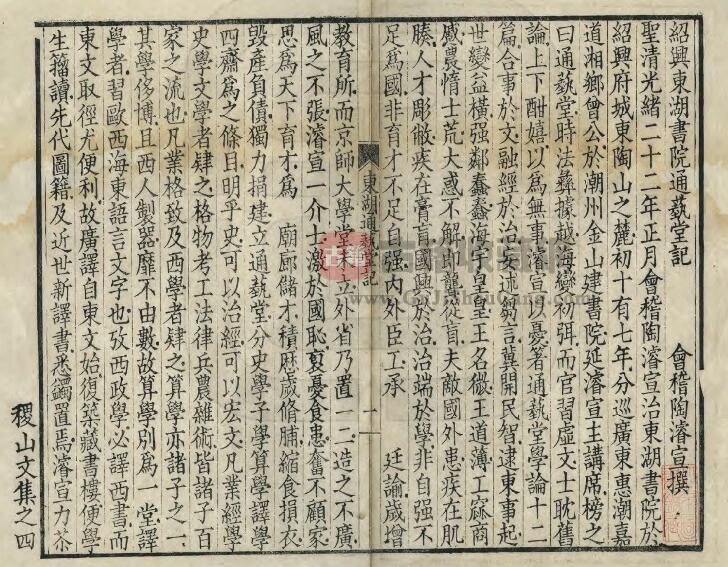 紹興東湖書院通蓺堂記
會稽陶濬宣撰
聖清光緒二十二年正月會稽陶濬宣治東湖書院於
紹興府城東陶山之麓初十有七年分巡廣東惠潮嘉
道湘鄉曾公於潮州金山建書院延濬宣主講席榜之
曰通蓺堂時法彝據越海蠻初弭而官習虛文士耽舊
論上下酣嬉以為無事濬宣以憂著通蓺堂學論十二
篇合事於文融經於治妄述芻言冀開民智逮東事起
世變益橫强鄰蠢蠢海宇皇皇王名微王道薄工窳商
慼農惰士荒大惑不解即聾從盲夫敵國外患疾在肌
膝人才彫敝疾在膏肓國興於治治端於學非自强不
足為國非育才不足自强內外臣工承 廷諭歲增
東湖通蓺堂記
一
教育所而京師大學堂未立外省乃置一二造之不廣
風之不張濬宣一介士激於國恥憂食患奮不顧家
思為天下育才為 廟廊儲才積歷歲脩脯縮食損衣
毀產負債獨力捐建立通蓺堂分史學子學算學譯學
四齋為之條目明乎史可以治經可以宏文凡業經學
史學文學者肄之格物考工法律兵農雜術皆諸子百
家之流也凡業格致及西學者肄之算學亦諸子之一
其學侈博且西人製器靡不由數故算學別為一堂譯
學者習歐西海東語言文字也攷西政學必譯西書而
東文取徑尤便利故廣譯自東文始復築藏書樓便學
生籀讀先代圖籍及近世新譯書悉鐲置焉濬宣力苶
稷山文集之四